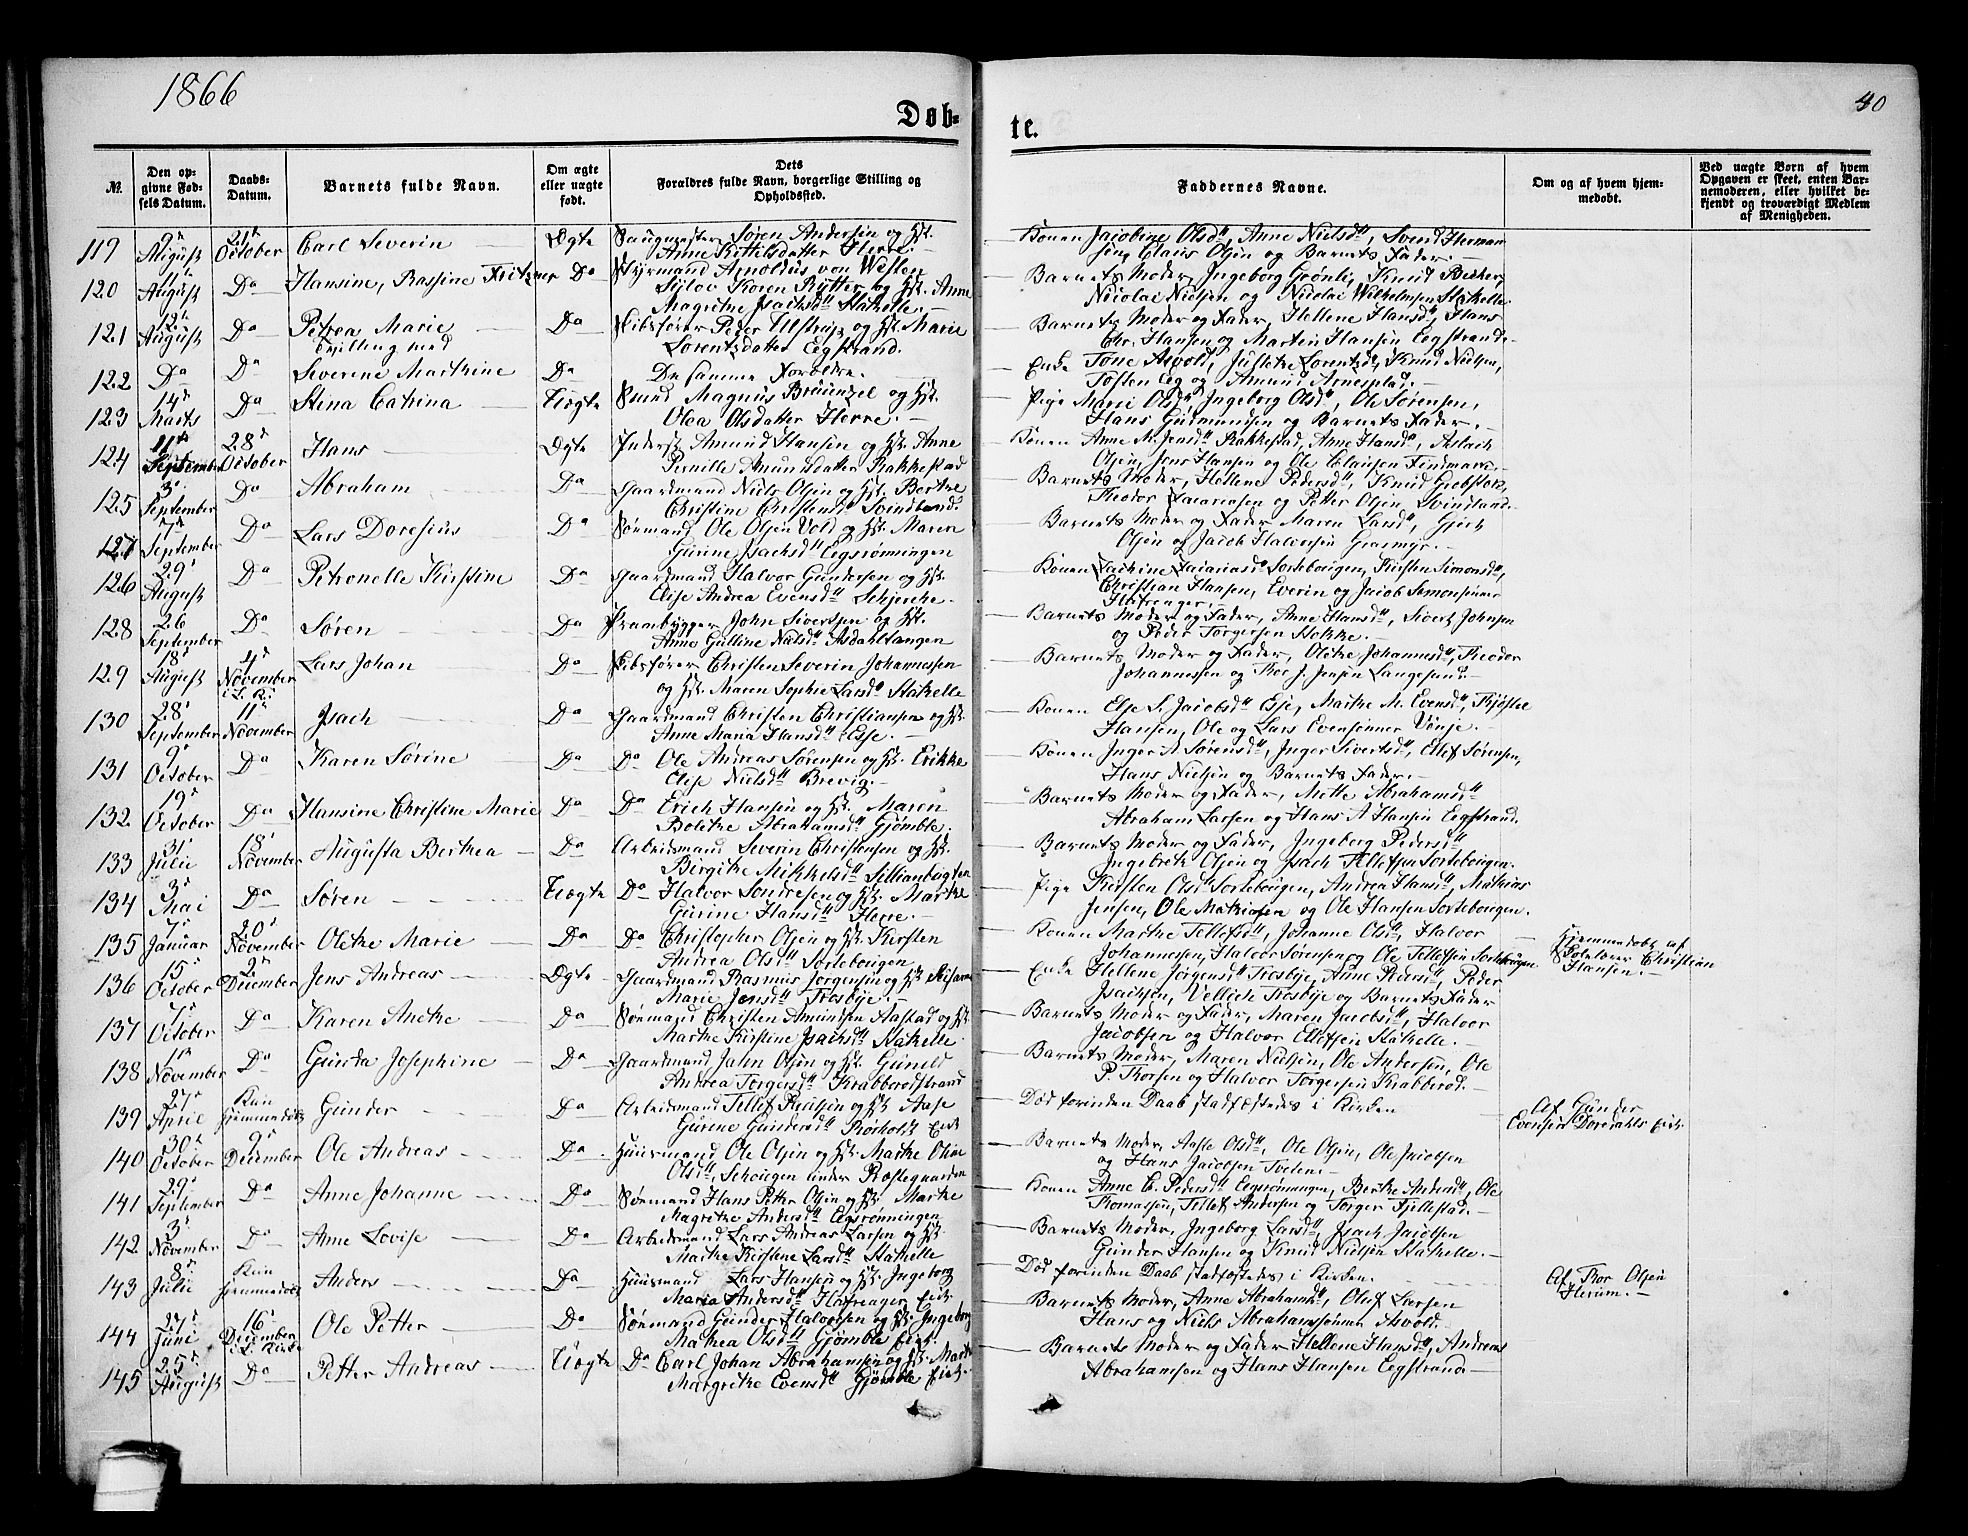 1866
40
Døb-
te.
№.
Den op-
givne Fød-
sels Datum.
Daabs-
Datum.
Barnets fulde Navn.
Om ægte
eller uægte
født.
Dets
Forældres fulde Navn, borgerlige Stilling og
Opholdssted.
Faddernes Navne.
Om og af hvem hjem-
medøbt.
Ved uægte Børn af hvem
Opgaven er skeet, enten Bar-
nemoderen, eller hvilket be-
kjendt og troværdigt Medlem
af Menigheden.
119 August 21 October Carl Severin Ægte Søren Andersen og
Anne Kittilsdatter Herre.
Konen Jacobine Olsd., Anne Nielsd., Svend Herman
Claus Olsen og Barnets Fader.
120 11 August Do Hansine, Rassine Fritzner Do Styrmand Arnoldus von Westen
Sylov Koren Rytter og Anne
Magrethe Isachsd. Stathelle.
Barnets Moder, Ingeborg Grønli, Knud Becker,
Nicolai Nielsen og Nicolai Wilhelmsen Stathelle
121 12 August Do Petrea Marie
Tvilling med
Do Skibsfører Peder Ulstrup og Marie
Lorentzdatter Eegstrand.
Barnets Moder og Fader, Hellene Hansd., Hans
Chr. Hansen og Martin Hansen Eegstrand
122 Do Do Severine Marthine Do De samme Forældre.
Enke Tone Asvold, Lorentzd., Knud Nielsen,
Tosten Eeg og Amund
123 14 Marts Do Stina Catrina Uægte Magnus og
Olea Olsdatter Herre.
Pige Marie Olsd., Ingeborg Olsd., Ole Sørensen,
Hans Gudmundsen og Barnets Fader.
124 11 September 28 October Hans Ægte Inderst Amund Hansen og Anne
Pernille Amundsdatter Rakkestad
Konen Anne M. Jensd. Rakkestad, Anne Hansd., Aslach
Olsen, Jens Hansen og Ole Clausen Findmark
125 3 September Do Abraham Do Gaardmand Niels Olsen og Berthe
Christine Svindland.
Barnets Moder, Hellene Pedersd., Knud
Theodor Zacariasen og Petter Olsen Svindland
127 7 September Do Lars Do Sømand Ole Olsen Vold og Maren
Gurine Isachsd. Eegsrønningen
Barnets Moder og Fader Maren Larsd.,
Olsen og Jacob Halvorsen Grasmyr.
126 29 August Do Petronelle Kirstine Do Gaardmand Halvor Gundersen og
Elise Andrea Evensd.
Konen Zachariasd. Sortebougen, Kirsten Simonsd.,
Christian Hansen, Everin og Jacob Simonsønner
128 26 September Do Søren Do Prambygger John Sivertsen og
Anne Gulline Nielsd. Asdahltangen
Barnets Moder og Fader, Anne Hansd., Sivert Johnsen
og Peder Torgersen Stokke.
129 18 August 4 November Lars Johan Do Skibsfører Christen Severin Johannesen
og Maren Sophie Larsd. Stathelle
Barnets Moder og Fader, Olethe Johannesd., Theodor
Johannesen og Thor J. Jensen Langesund.
130 28 September 11 November Isach Do Gaardmand Christen Christiansen og
Anne Maria Hansd. Esse.
Konen Else S. Jacobsd. Esse, Marthe M. Evensd.,
Hansen, Ole og Lars Evensønner
131 9 October Do Karen Sørine Do Do Ole Andreas Sørensen og
Elise Nielsd. Brevig.
Konen Inger A. Sørensd., Inger Sivertsd., Ellef Sørensen,
Hans Nielsen og Barnets Fader.
132 19 October Do Hansine Christine Marie Do Do Erich Hansen og Maren
Bolethe Abrahamsd. Gjømble.
Barnets Moder og Fader, Mette Abrahamsd.
Abraham Larsen og Hans A Hansen Eegstrand.
133 31 Julii 18 November Augusta Berthea Do Arbeidsmand Severin Christensen og
Birgithe Mikkelsd.
Barnets Moder og Fader, Ingeborg Pedersd.
Ingebreth Olsen og Isach Tellefsen Sortebougen.
134 3 Mai Do Søren Uægte Do Halvor Sondresen og Marthe
Gurine Hansd. Herre.
Pige Kirsten Olsd. Sortebougen, Andrea Hansd., Mathias
Jensen, Ole Mathiasen og Ole Hansen Sortebougen.
135 7 Januar 20 November Olethe Marie Do Do Christopher Olsen og Kirsten
Andrea Olsd. Sortebougen
Konen Marthe Tellefsd., Johanne Olsd., Halvor
Johannesen, Halvor Sørensen og Ole Tellefsen Sortebougen
Hjemmedøbt af
Christian
Hansen.
136 15 October 2 December Jens Andreas Ægte Gaardmand Rasmus Jørgensen og Susanne
Marie Jensd. Trosbye.
Enke Hellene Jørgensd. Trosbye, Anne Pedersd., Peder
Isachsen, Trosbye og Barnets Fader
137 7 October Do Karen Anethe Do Sømand Christen Amundsen Aastad og
Marthe Kirstine Isachsd. Stathelle.
Barnets Moder og Fader, Maren Jacobsd., Halvor
Jacobsen og Halvor Ellefsen Stathelle.
138 1 November Do Gunda Josephine Do Gaardmand Jahn Olsen og Gunild
Andrea Torgersd. Krabberødstrand
Barnets Moder, Maren Nielsen, Ole Andersen, Ole
P. Thorsen og Halvor Torgersen Krabberød.
139 27 April Kun Hjemmedøbt Gunder Do Arbeidsmand Tellef Poulsen og Aase
Gurine Gundersd. Rørholdt
Død forinden Daab stadfæstedes i Kirken
Af Gunder
Evensen
140 30 October 9 December Ole Andreas Do Huusmand Ole Olsen og Marthe Oline
Olsd., Schougen under Præstegaarden
Barnets Moder, Aasle Olsd., Ole Olsen, Ole Jacobsen
og Hans Jacobsen Tvetene
141 29 September Do Anne Johanne Do Sømand Hans Petter Olsen og Marthe
Magrethe Andersd. Eegsrønningen
Konen Anne C. Pedersd. Eegsrønningen, Berthe Andersd., Ole
Thomassen, Tellef Andersen og Torger Fjellestad.
142 3 November Do Anne Lovise Do Arbeidsmand Lars Andreas Larsen og
Marthe Kirstene Larsd. Stathelle
Barnets Moder, Ingeborg Larsd., Isach Jacobsen
Gunder Hansen og Knud Nielsen Stathelle.
143 8 Julii Kun Hjemmedøbt Anders Do Huusmand Lars Hansen og Ingeborg
Maria Andersd.
Død forinden Daab stadfæstedes i Kirken.
Af Thor Olsen
Herum.
144 27 Juni 16 December i L. Kirke Ole Petter Do Sømand Gunder Halvorsen og Ingeborg
Mathea Olsd. Gjømble
Barnets Moder, Anne Abrahamsd., Oluf Larsen
Hans og Niels Abrahamsønner Asvold.
145 25 August Do Petter Andreas Uægte Do Carl Johan Abrahamsen og Marthe
Margrethe Evensd. Gjømble
Barnets Moder og Fader Hellene Hansd., Andreas
Abrahamsen og Hans Hansen Eegstrand